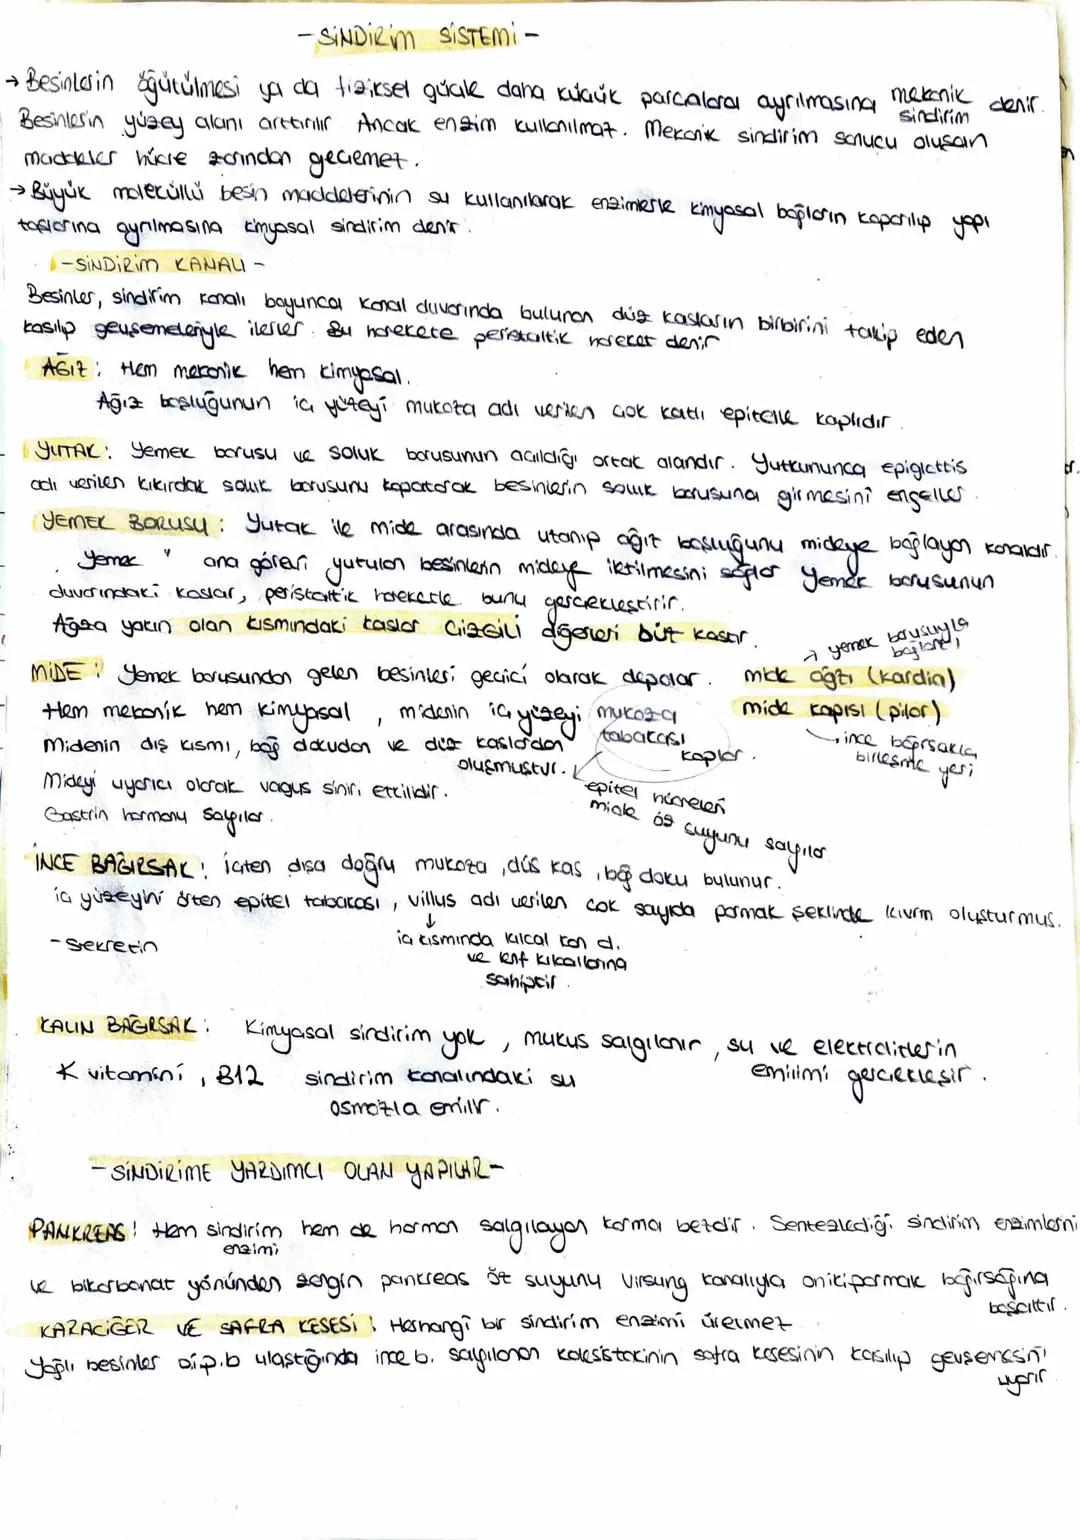 - SİNDİRİM SİSTEMİ -
→ Besinlerin öğütülmesi ya da fiziksel güçle daha küçük parçalara ayrılmasına mekanik sindirim denir.
Besinlerin yüzey alanı arttırılır. Ancak enzim kullanılmaz. Mekanik sindirim sonucu oluşan
maddeler hücre zarından geçemez.
→ Büyük moleküllü besin maddelerinin su kullanılarak enzimlerle kimyasal bağların koparılıp yapı
taşlarına ayrılmasına kimyasal sindirim denir.
- SİNDİRİM KANALI -
Besinler, sindirim kanalı boyunca kanal duvarında bulunan düz kasların birbirini takip eden
kasılıp gevşemeleriyle ilerler. Bu harekete peristaltik hareket denir
AĞIZ: Hem mekanik hem kimyasal.
Ağız boşluğunun iç yüzeyi mukoza adı verilen çok katlı epitelle kaplıdır.
YUTAK: Yemek borusu ve soluk borusunun açıldığı ortak alandır. Yutkununca epiglottis
adı verilen kıkırdak soluk borusunu kapatarak besinlerin soluk borusuna girmesini engeller.
YEMEK BORUSU: Yutak ile mide arasında uzanıp ağız boşluğunu mideye bağlayan kanaldır.
Yemek " ana görevi yutulan besinlerin mideye iletilmesini sağlar Yemek borusunun
duvarındaki kaslar, peristaltik hareketle bunu gerçekleştirir.
Ağıza yakın olan kısmındaki kaslar ÇİZGİLİ diğerleri düz kastır.
→ yemek borusuyla bağlantı
MİDE: Yemek borusundan gelen besinleri geçici olarak depolar. mide ağzı (kardia)
Hem mekanik hem kimyasal, midenin iç yüzeyi mukoza tabakası kaplar. mide kapısı (pilor)
→ ince bağırsakla birleşme yeri
Midenin dış kısmı, bağ dokudan ve düz kaslardan oluşmuştur.
epitel hücreleri mide öz suyunu salgılar
Mideyi uyarıcı olarak vagus siniri etkilidir.
Gastrin hormonu salgılar.
İNCE BAĞIRSAK: içten dışa doğru mukoza, düz kas, bağ doku bulunur.
iç yüzeyini örten epitel tabakası, villus adı verilen çok sayıda parmak şeklinde kıvrım oluşturmuş.
- Sekretin
iç kısmında kılcal kan d.
ve lenf kılcallarına
sahiptir.
KALIN BAĞIRSAK: Kimyasal sindirim yok, mukus salgılanır, su ve elektrolitlerin emilimi gerçekleşir.
K vitamini, B12 sindirim kanalındaki su
osmozla emilir.
- SİNDİRİME YARDIMCI OLAN YAPILAR -
PANKREAS: Hem sindirim enzimi hem de hormon salgılayan karma bezdir. Sentezlediği sindirim enzimlerini
ve bikarbonat yönünden zengin pankreas öz suyunu virsung kanalıyla onikiparmak bağırsağına boşaltır.
KARACİĞER VE SAFRA KESESİ: Herhangi bir sindirim enzimi üretmez
Yağlı besinler o.i.p.b ulaştığında ince b. salgılanan kolesistokinin safra kesesinin kasılıp gevşemesini uyarır